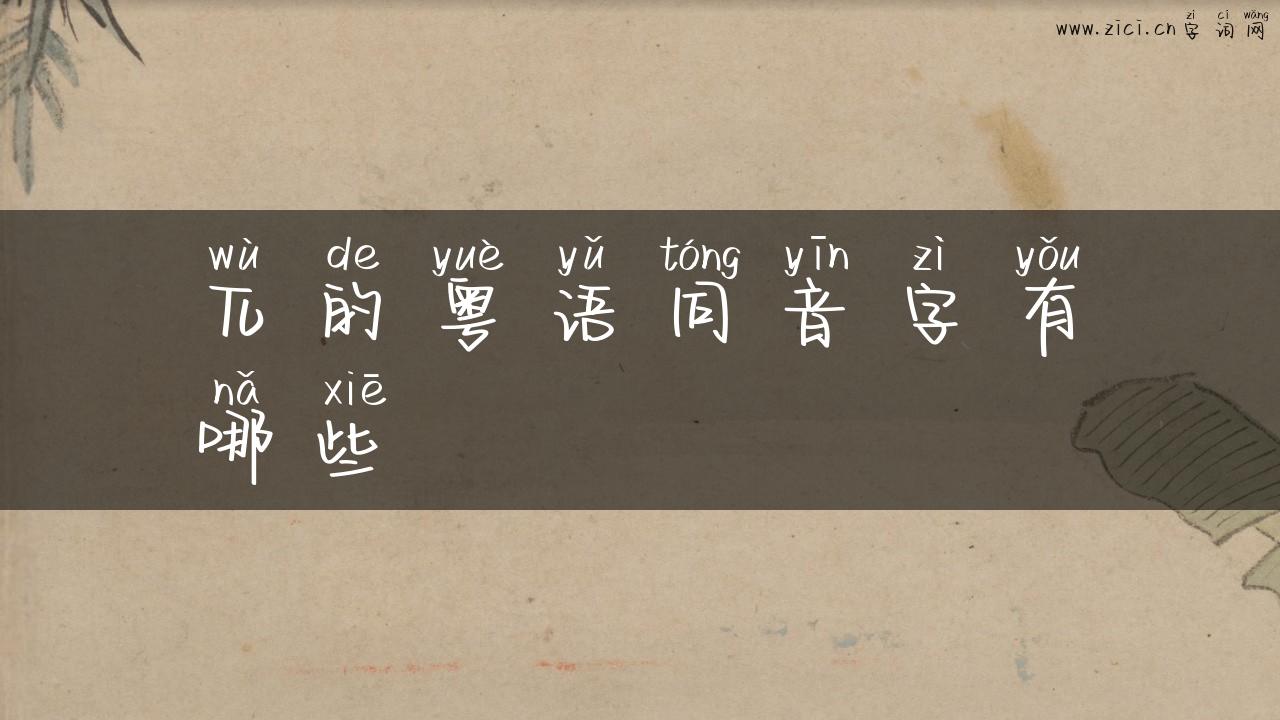 zì cí wǎng
www.zici.cn 字词网
wù de yuè yǔ tóng yīn zì yǒu
兀的粤语同音字有
nǎ xiē
哪些